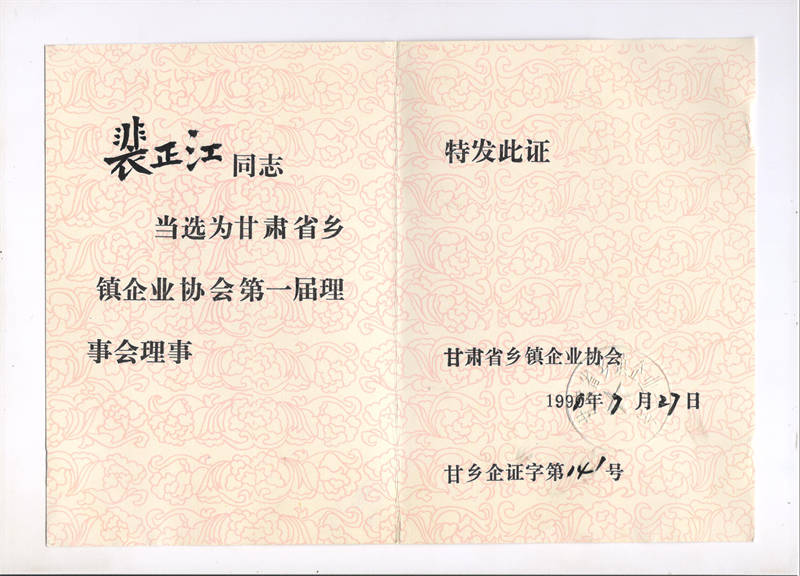 裴正江同志
当选为甘肃省乡
镇企业协会第一届理
事会理事
特发此证
甘肃省乡镇企业协会
1991年9月27日
甘乡企证字第141号